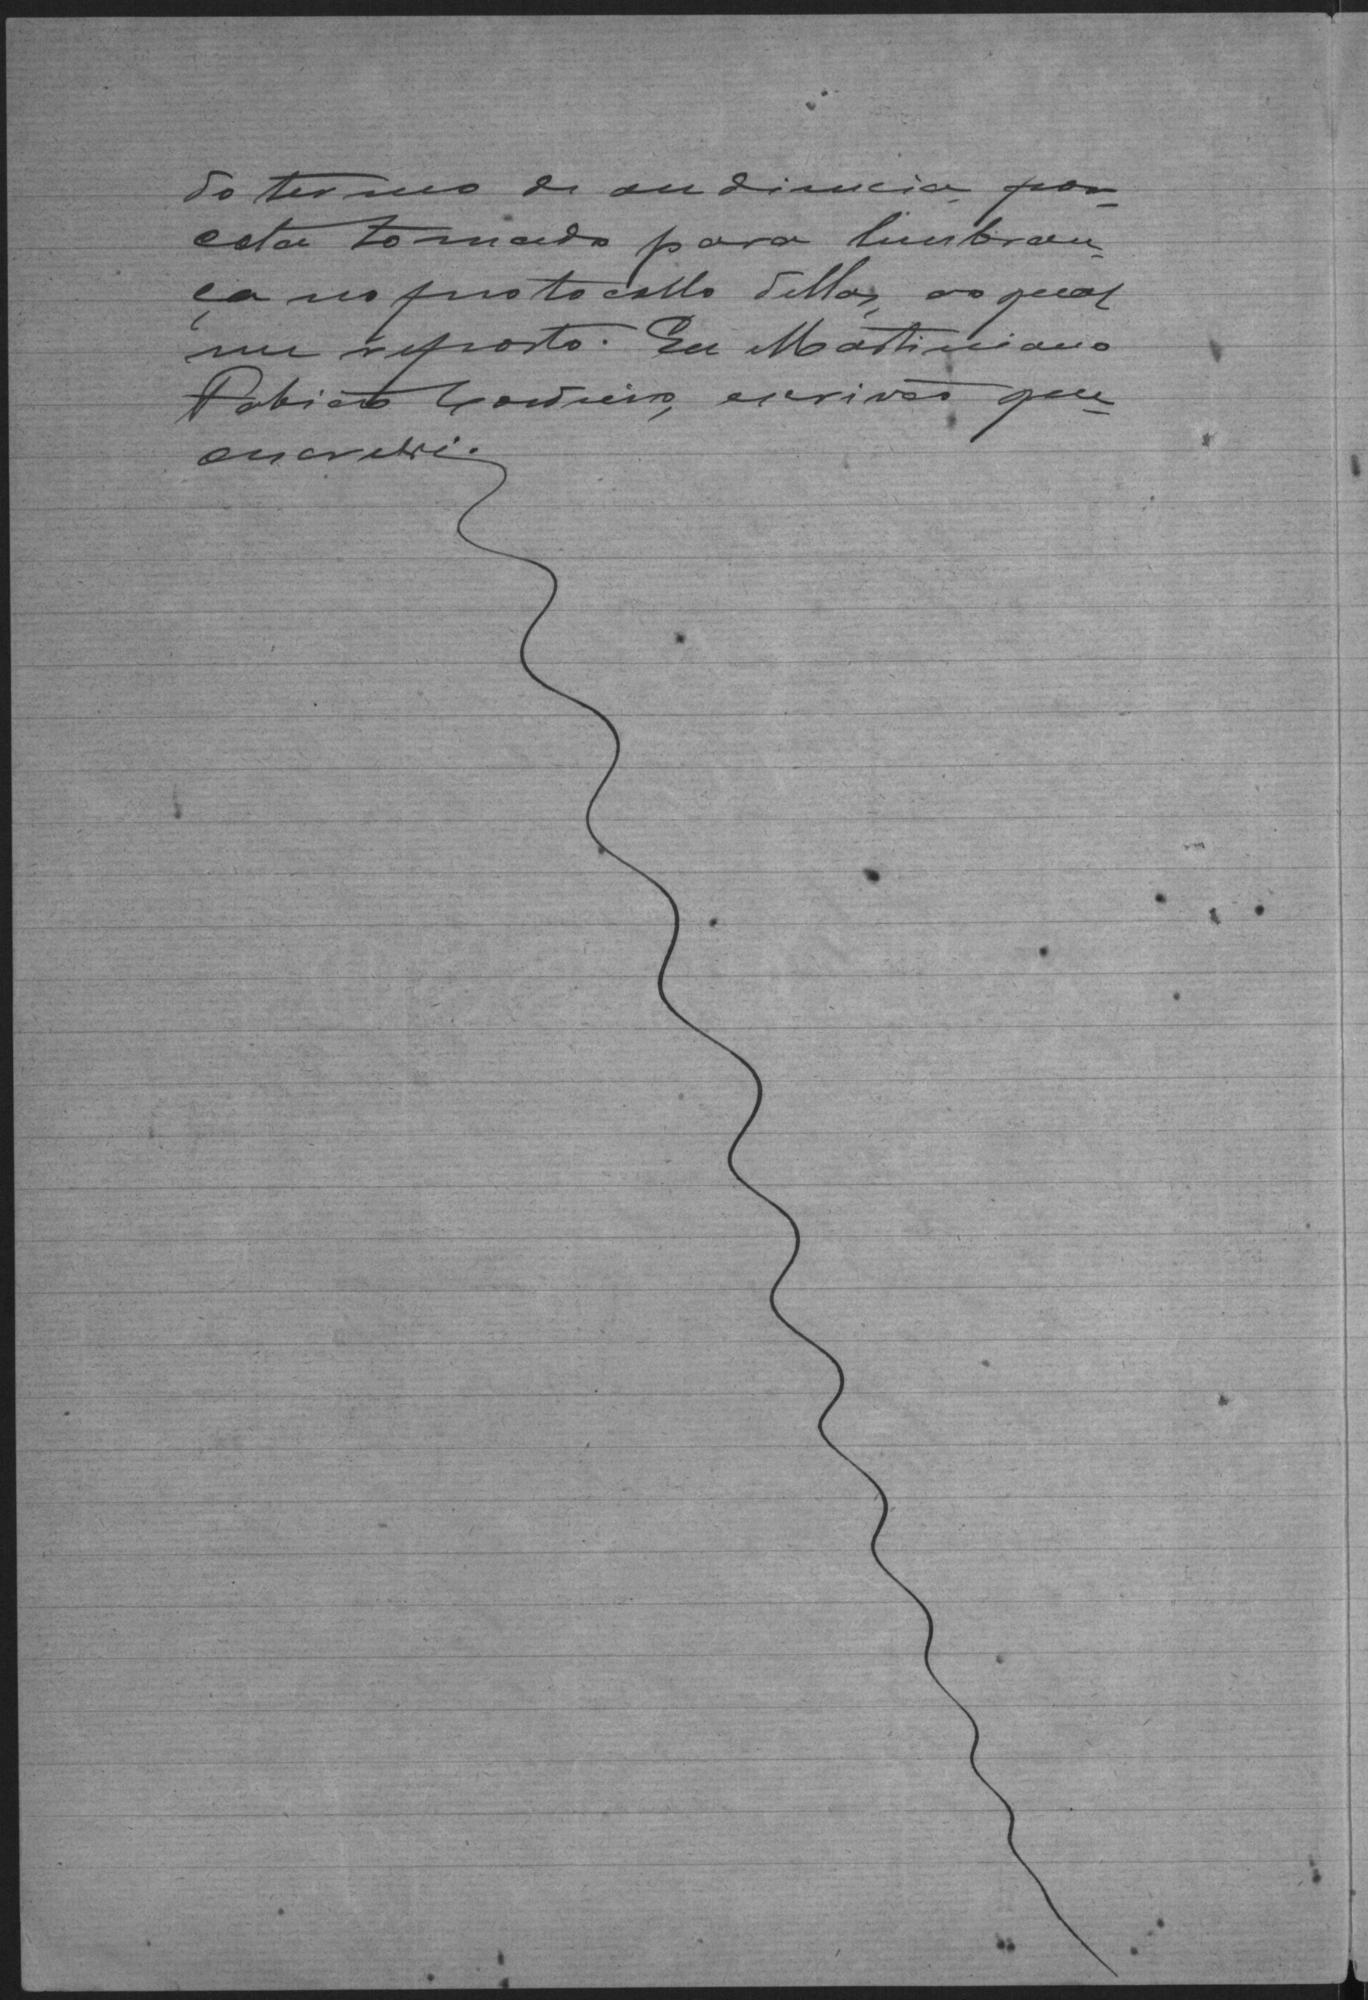 do termo de audiencia por
esta tomado para lembran-
ça no protocollo dellas, ao qual
me reporto. Eu Martiniano
Cordeiro, escrivão que
escrevi.